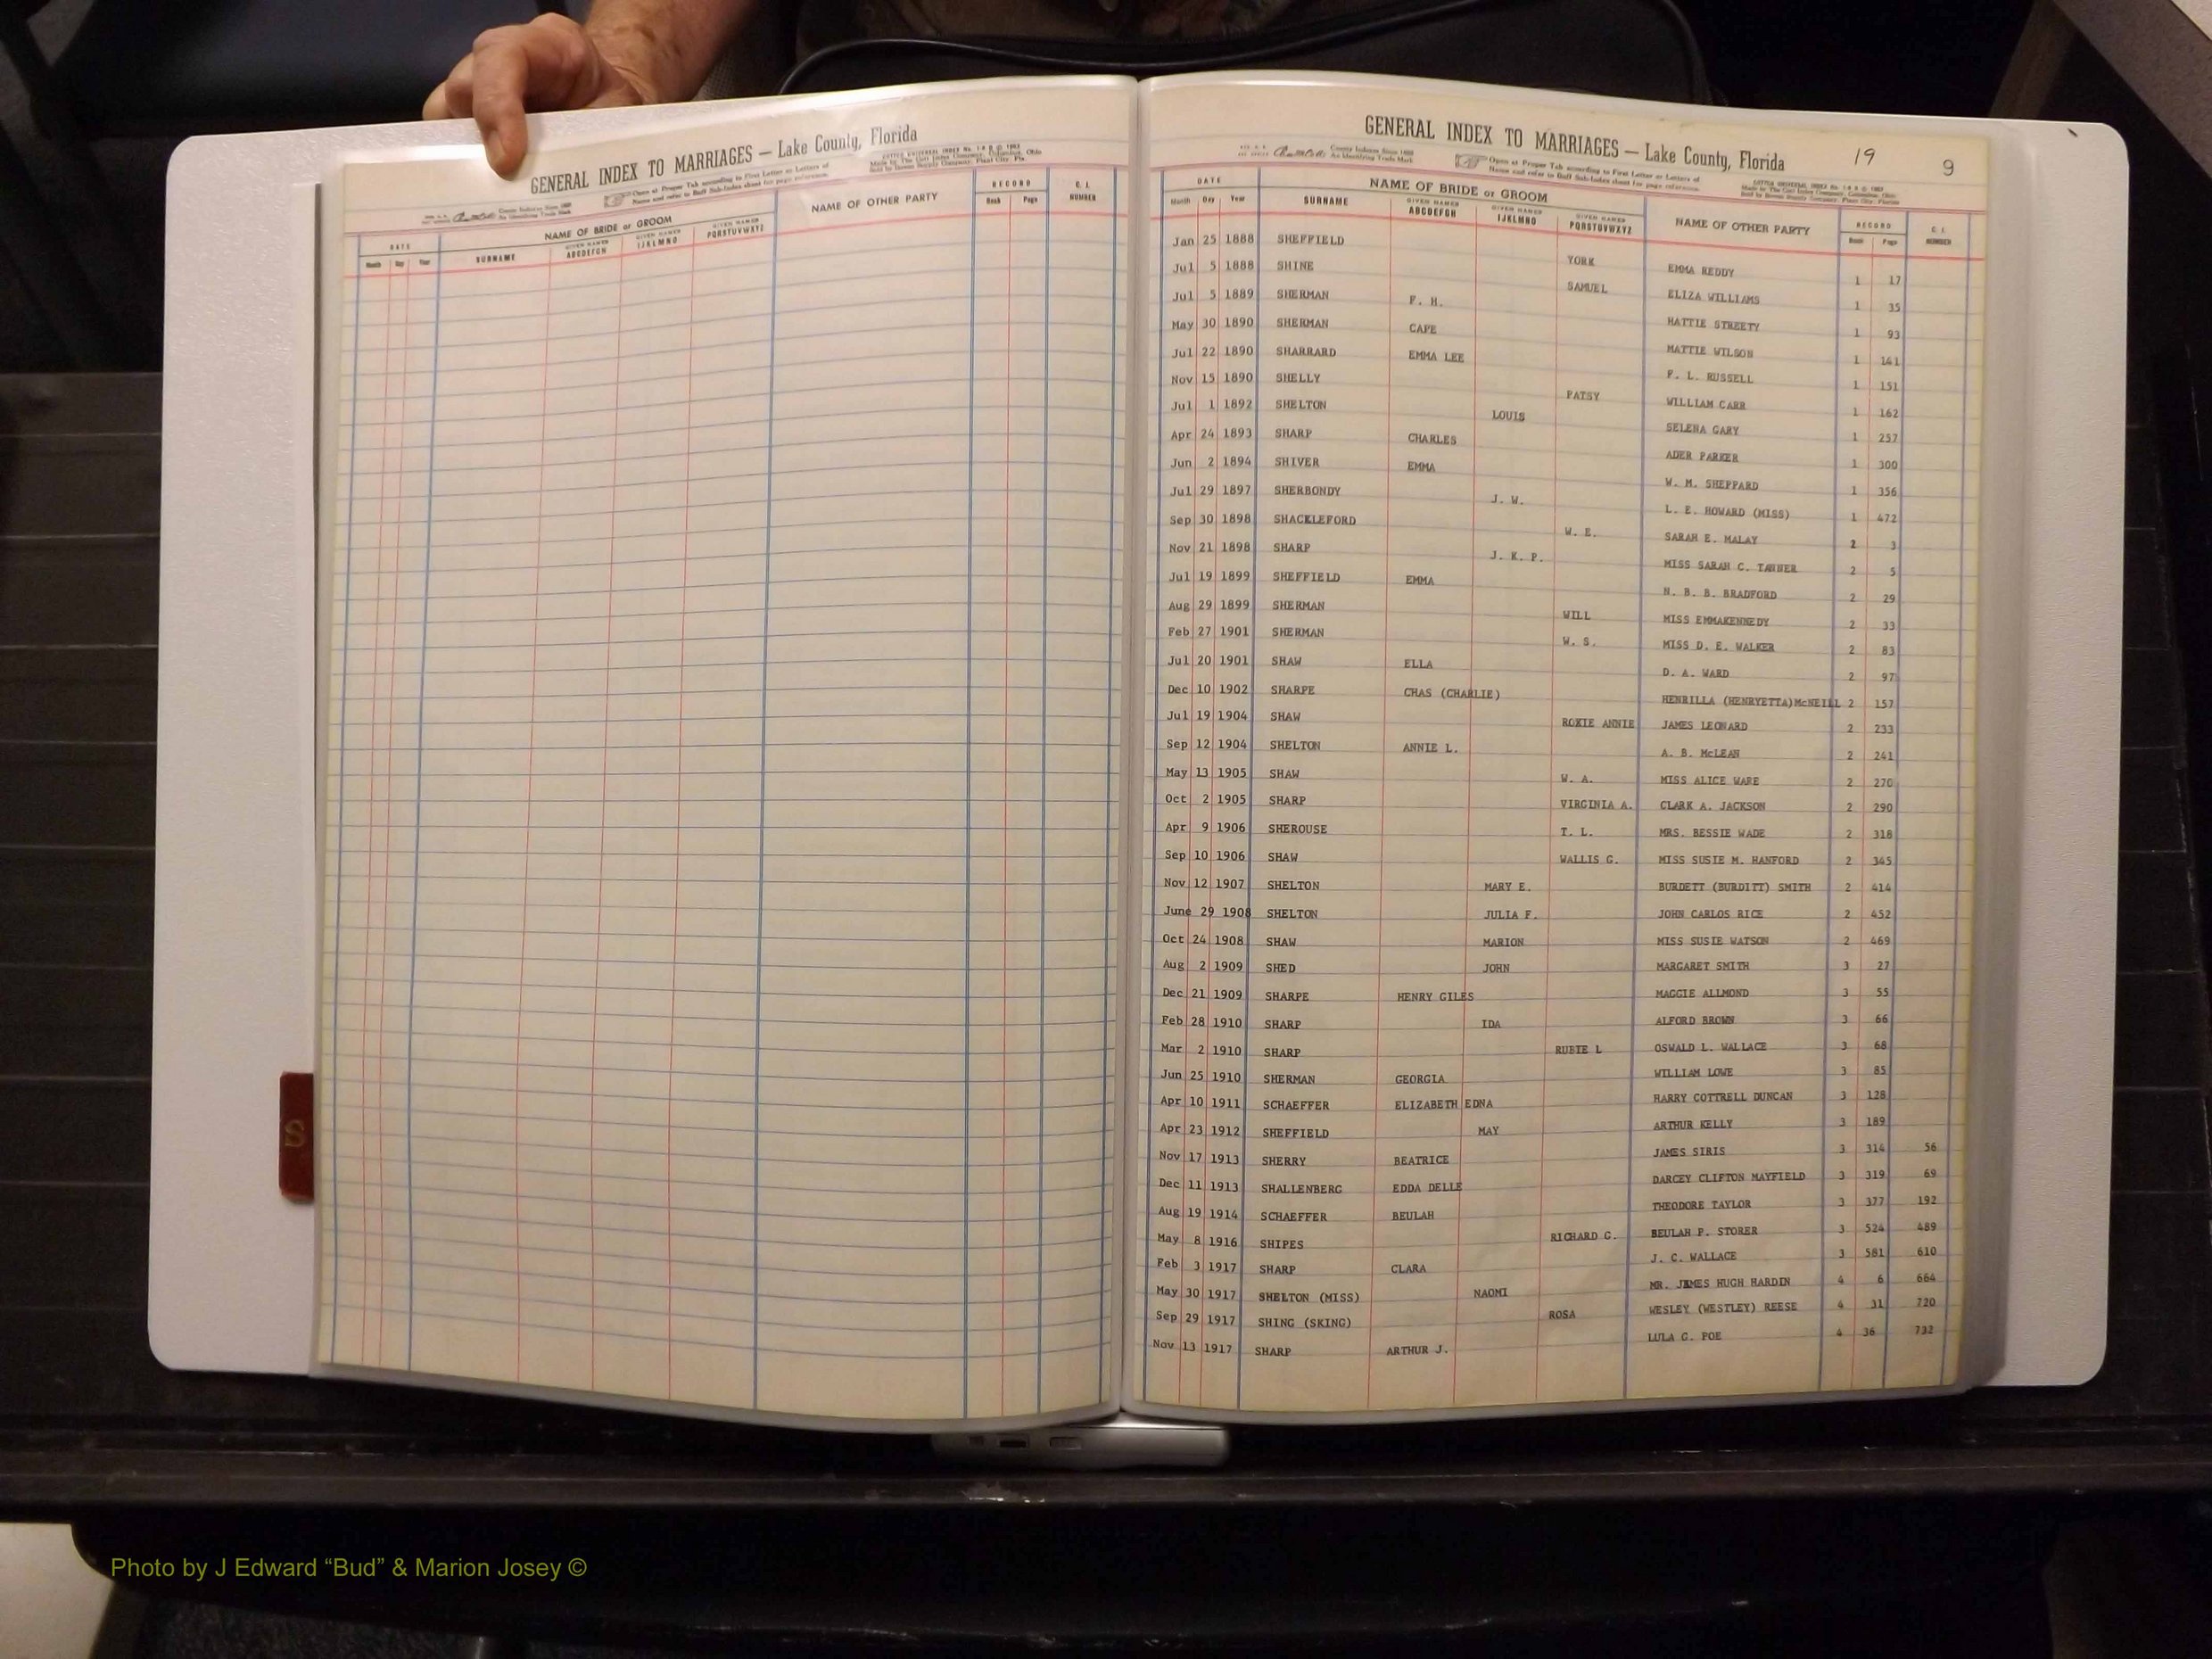 GENERAL INDEX TO MARRIAGES — Lake County, Florida
DATE NAME OF BRIDE or GROOM NAME OF OTHER PARTY RECORD C. I. NUMBER
Month Day Year SURNAME GIVEN NAMES ABCDEFGH GIVEN NAMES IJKLMNO GIVEN NAMES PQRSTUVWXYZ Book Page
GENERAL INDEX TO MARRIAGES — Lake County, Florida
19 9
DATE NAME OF BRIDE or GROOM NAME OF OTHER PARTY RECORD C. I. NUMBER
Month Day Year SURNAME GIVEN NAMES ABCDEFGH GIVEN NAMES IJKLMNO GIVEN NAMES PQRSTUVWXYZ Book Page
Jan 25 1888 SHEFFIELD YORK EMMA REDDY 1 17
Jul 5 1888 SHINE SAMUEL ELIZA WILLIAMS 1 35
Jul 5 1889 SHERMAN F. H. HATTIE STREETY 1 93
May 30 1890 SHERMAN CAPE MATTIE WILSON 1 141
Jul 22 1890 SHARRARD EMMA LEE F. L. RUSSELL 1 151
Nov 15 1890 SHELLY PATSY WILLIAM CARR 1 162
Jul 1 1892 SHELTON LOUIS SELENA GARY 1 257
Apr 24 1893 SHARP CHARLES ADER PARKER 1 300
Jun 2 1894 SHIVER EMMA W. M. SHEPPARD 1 356
Jul 29 1897 SHERBONDY J. W. L. E. HOWARD (MISS) 1 472
Sep 30 1898 SHACKLEFORD W. E. SARAH E. MALAY 2 3
Nov 21 1898 SHARP J. K. P. MISS SARAH C. TANNER 2 5
Jul 19 1899 SHEFFIELD EMMA N. B. B. BRADFORD 2 29
Aug 29 1899 SHERMAN WILL MISS EMMAKENNEDY 2 33
Feb 27 1901 SHERMAN W. S. MISS D. E. WALKER 2 83
Jul 20 1901 SHAW ELLA D. A. WARD 2 97
Dec 10 1902 SHARPE CHAS (CHARLIE) HENRILLA (HENRYETTA)McNEILL 2 157
Jul 19 1904 SHAW ROXIE ANNIE JAMES LEONARD 2 233
Sep 12 1904 SHELTON ANNIE L. A. B. McLEAN 2 241
May 13 1905 SHAW W. A. MISS ALICE WARE 2 270
Oct 2 1905 SHARP VIRGINIA A. CLARK A. JACKSON 2 290
Apr 9 1906 SHEROUSE T. L. MRS. BESSIE WADE 2 318
Sep 10 1906 SHAW WALLIS G. MISS SUSIE M. HANFORD 2 345
Nov 12 1907 SHELTON MARY E. BURDETT (BURDITT) SMITH 2 414
June 29 1908 SHELTON JULIA F. JOHN CARLOS RICE 2 452
Oct 24 1908 SHAW MARION MISS SUSIE WATSON 2 469
Aug 2 1909 SHED JOHN MARGARET SMITH 3 27
Dec 21 1909 SHARPE HENRY GILES MAGGIE ALLMOND 3 55
Feb 28 1910 SHARP IDA ALFORD BROWN 3 66
Mar 2 1910 SHARP RUBIE L OSWALD L. WALLACE 3 68
Jun 25 1910 SHERMAN GEORGIA WILLIAM LOWE 3 85
Apr 10 1911 SCHAEFFER ELIZABETH EDNA HARRY COTTRELL DUNCAN 3 128
Apr 23 1912 SHEFFIELD MAY ARTHUR KELLY 3 189
Nov 17 1913 SHERRY BEATRICE JAMES SIRIS 3 314 56
Dec 11 1913 SHALLENBERG EDDA DELLE DARCEY CLIFTON MAYFIELD 3 319 69
Aug 19 1914 SCHAEFFER BEULAH THEODORE TAYLOR 3 377 192
May 8 1916 SHIPES RICHARD G. BEULAH P. STORER 3 524 489
Feb 3 1917 SHARP CLARA J. C. WALLACE 3 581 610
May 30 1917 SHELTON (MISS) NAOMI MR. JAMES HUGH HARDIN 4 6 664
Sep 29 1917 SHING (SKING) ROSA WESLEY (WESTLEY) REESE 4 31 720
Nov 13 1917 SHARP ARTHUR J. LULA G. POE 4 36 732
S
Photo by J Edward “Bud” & Marion Josey ©